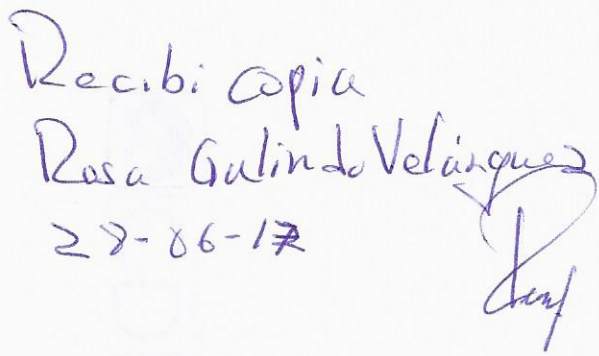 Recibi copia
Rosa Galindo Velázquez
28-06-17